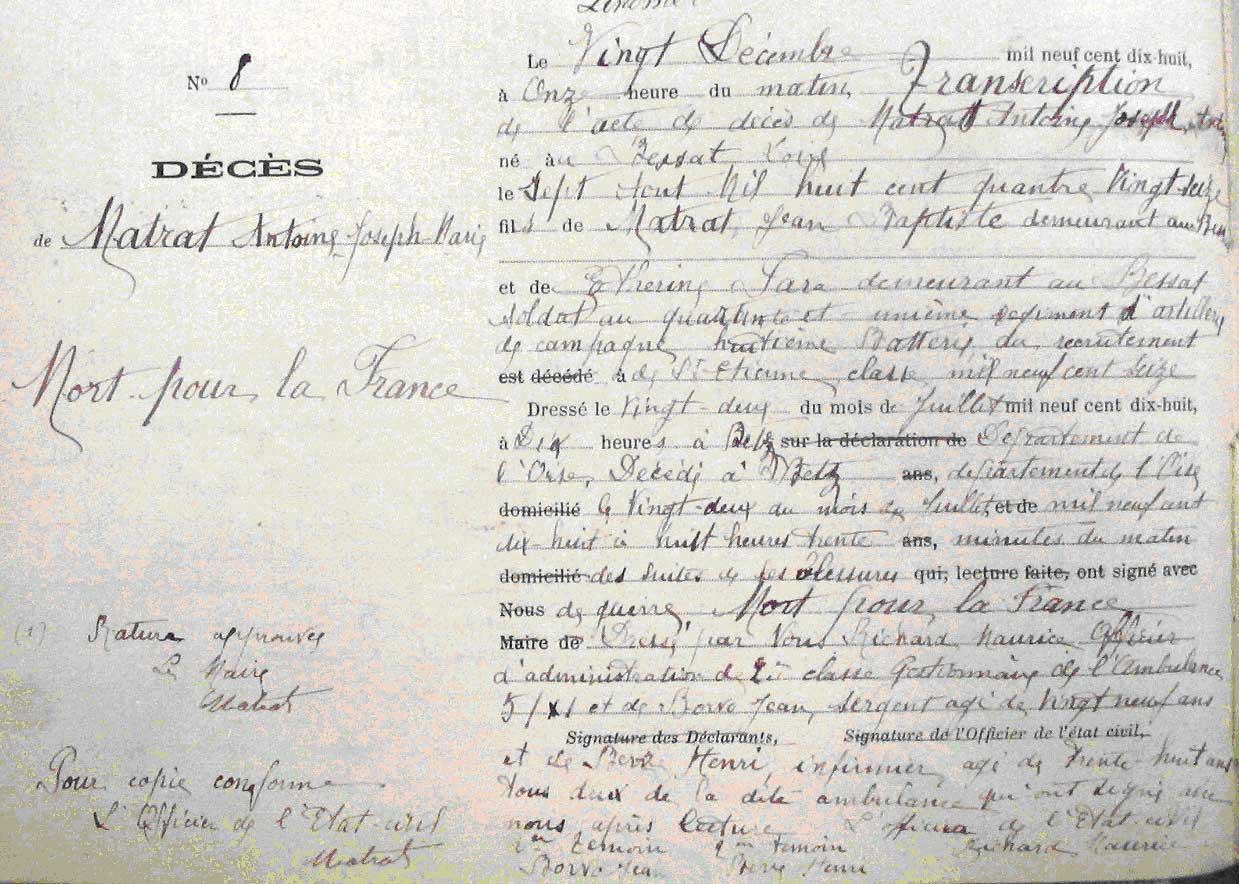 Nº 8
DÉCÈS
de Matrat Antoine Joseph Marie
Mort pour la France
(1) Rature approuvée
Le Maire
Matrat
Pour copie conforme
L'Officier de l'Etat-civil
Matrat
Le Vingt Décembre mil neuf cent dix-huit,
à Onze heure du matin, Transcription
de l'acte de décès de Matrat Antoine Joseph
né au Bessat Loire
le Sept Aout Mil huit cent quatre Vingt-seize
fils de Matrat Jean Baptiste demeurant au
et de demeurant au Bessat
soldat au quarante et unième regiment d'artillerie
de campagne huitième Batterie du recrutement
est décédé à de St Etienne classe mil neuf cent seize
Dressé le Vingt-deux du mois de Juillet mil neuf cent dix-huit,
à Dix heures à Betz sur la déclaration de Département de
l'Oise, Décédé à Betz ans, département de l'Oise
domicilié le Vingt-deux du mois de Juillet et de mil neuf cent
dix-huit à huit heures trente ans, minutes du matin
domicilié des suites de ses blessures qui, lecture faite, ont signé avec
Nous de guerre Mort pour la France
Maire de Dressé par Nous Richard Maurice Officier
d'administration de 2e classe Gestionnaire de l'Ambulance
5/ et de Borvo Jean, sergent agé de Vingt neuf ans
Signature des Déclarants, Signature de l'Officier de l'état civil,
et de Henri, infirmier, agé de trente-huit ans
tous deux de la dite ambulance qui ont signé avec
nous après lecture L'officier de l'Etat-civil
1er témoin 2me témoin Richard Maurice
Borvo Jean Henri